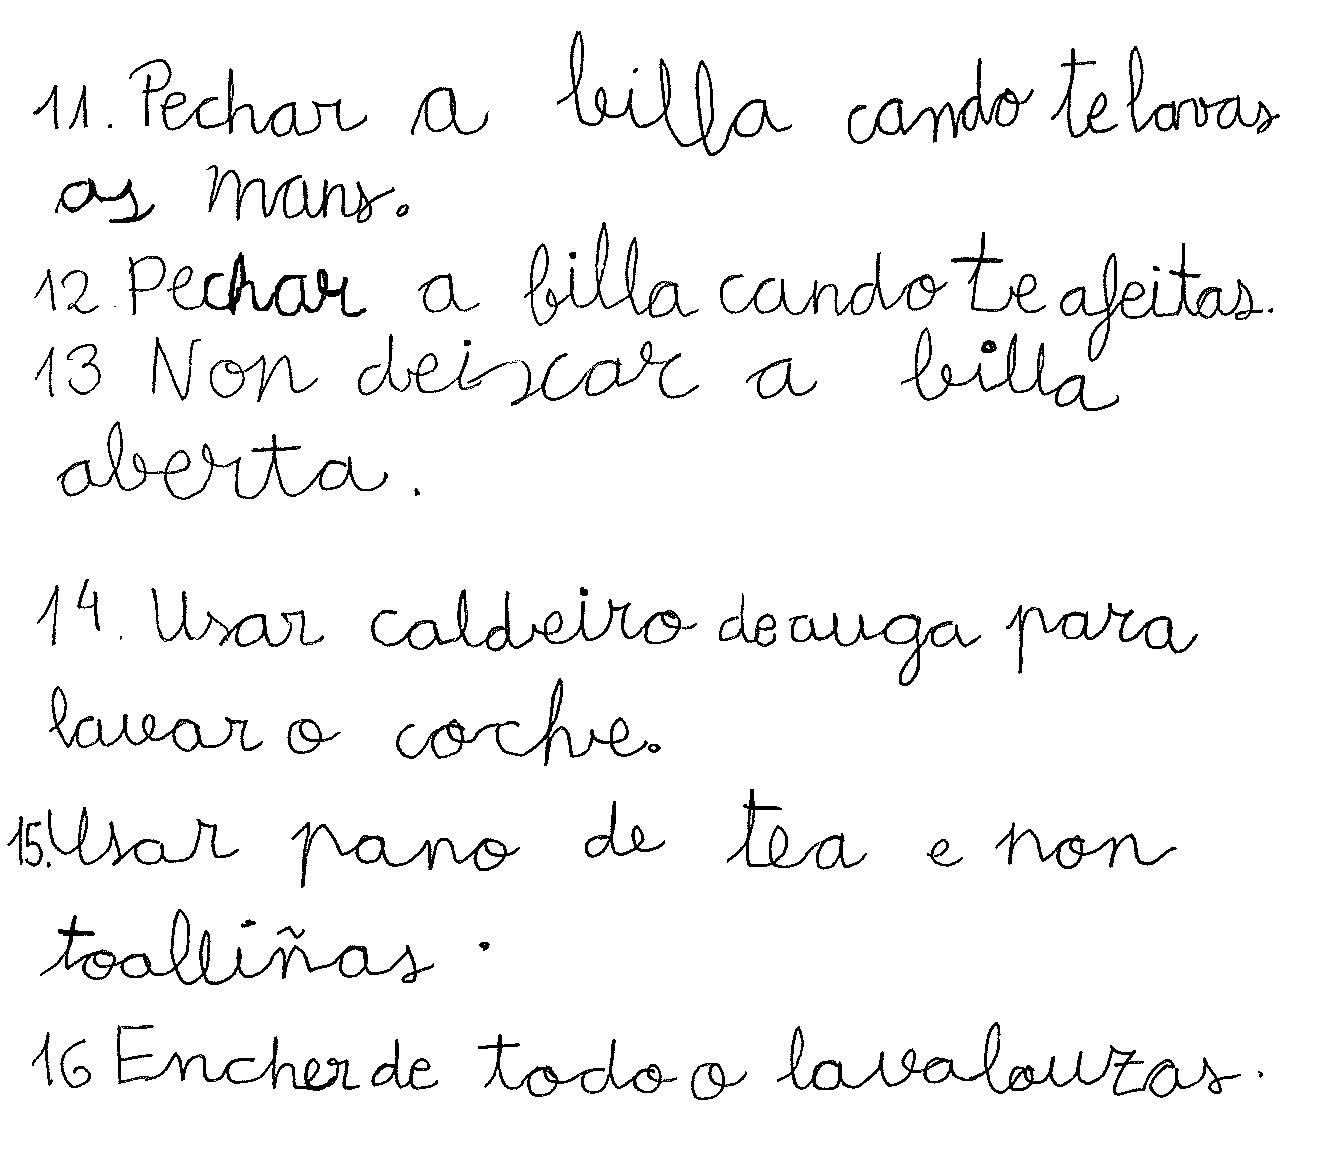 11. Pechar a billa cando te lavas
as mans.
12. Pechar a billa cando te afeitas.
13 Non deixar a billa
aberta.
14. Usar caldeiro de auga para
lavar o coche.
15. Usar pano de tea e non
toalliñas.
16 Encher de todo o lavalouzas.